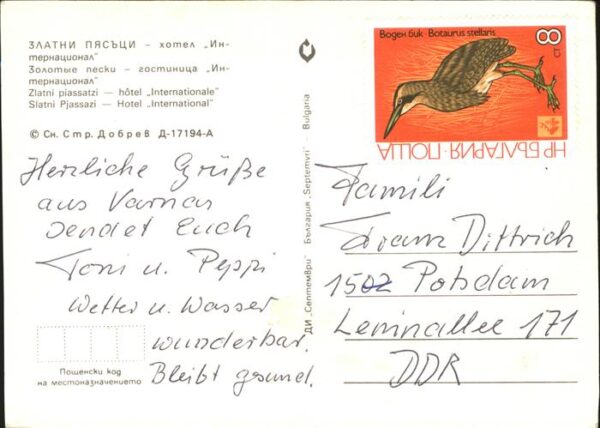 ЗЛАТНИ ПЯСЪЦИ – хотел „Ин-
тернационал"
Золотые пески – гостиница „Ин-
тернационал"
Zlatni piassatzi — hôtel „Internationale"
Slatni Pjassazi — Hotel „International"
© Сн. Стр. Добрев Д-17194-А
Herzliche Grüße
aus Varna
sendet Euch
Toni u. Peppi
Wetter u. Wasser
wunderbar.
Bleibt gesund.
Пощенски код
на местоназначението
ДИ „Септември" България „Septemvri" Bulgaria
Воден бик Botaurus stellaris
8 СТ
НР БЪЛГАРИЯ · ПОЩА
Famili
Franz Dittrich
1502 Potsdam
Leninallee 171
DDR